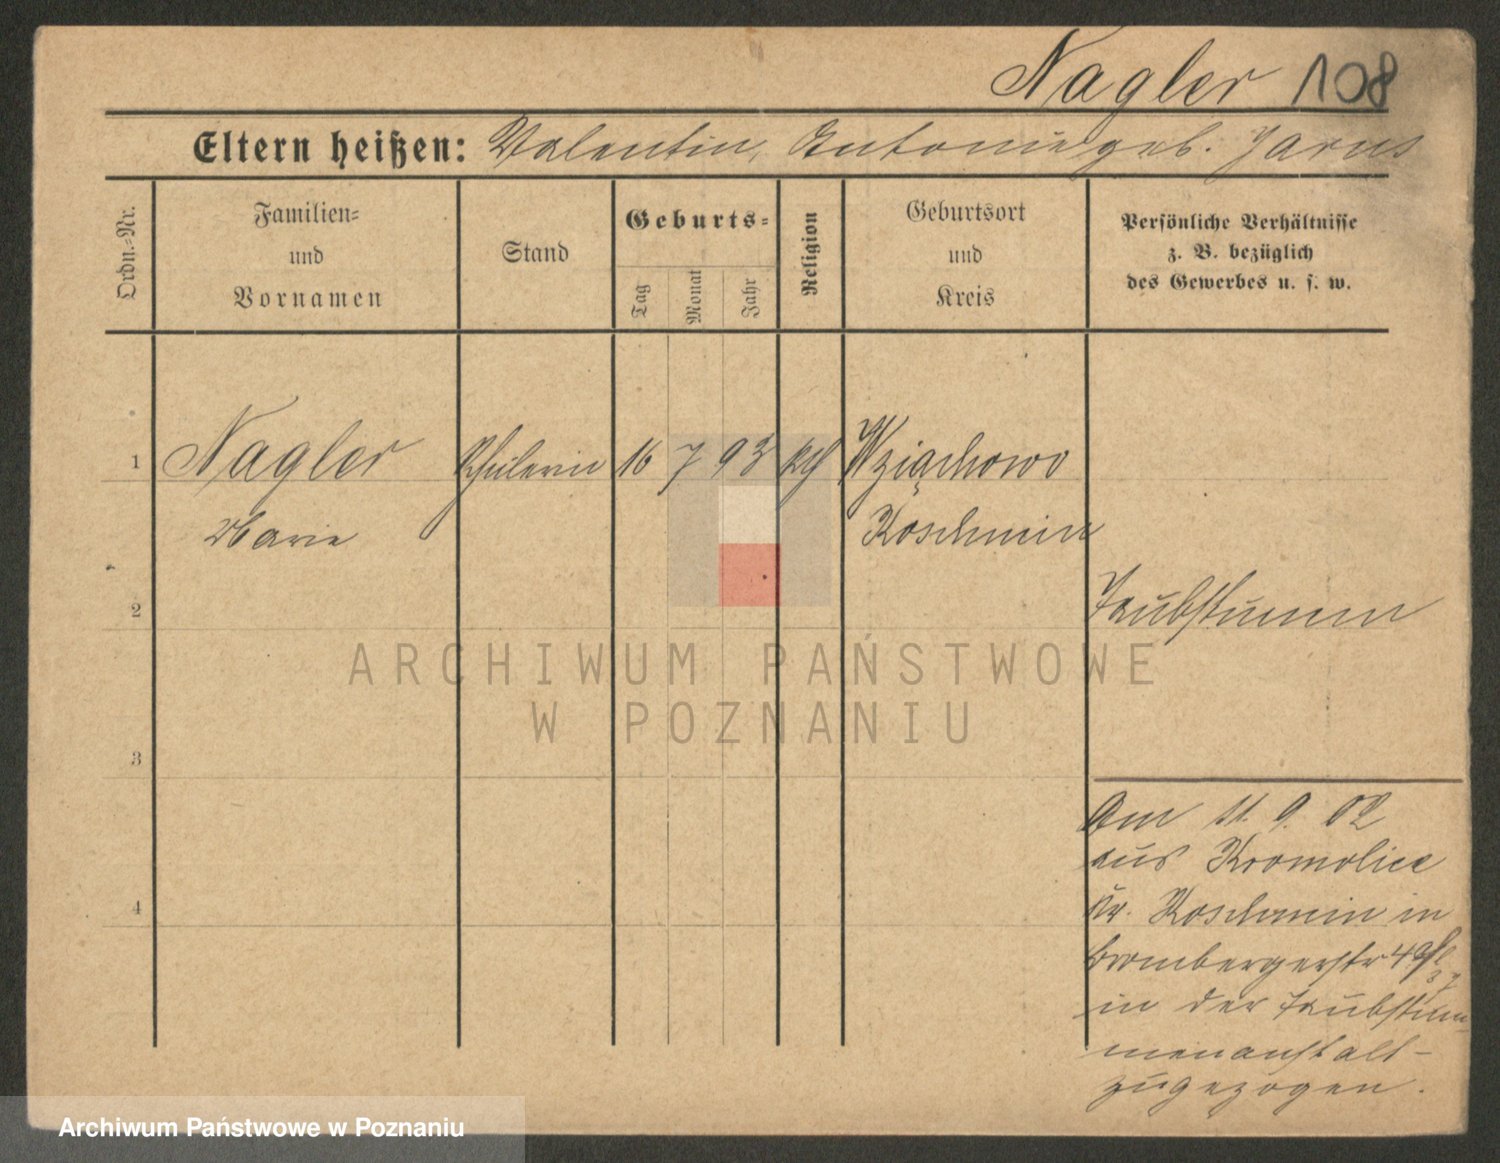 Nagler 108
Eltern heißen: Valentin, Antonie geb. Jarus
Ordn.-Nr.
Familien-
und
Vornamen
Stand
Geburts-
Tag
Monat
Jahr
Religion
Geburtsort
und
Kreis
Persönliche Verhältnisse
z. B. bezüglich
des Gewerbes u. s. w.
1 Nagler Schülerin 16 7 93 kth Wziąchowo
Marie Koschmin
2 Taubstumm
3
4
Am 11. 9. 02
aus Kromolice
Kr. Koschmin in
Brombergerstr 4
in der Taubstum
menanstalt
zugezogen.
ARCHIWUM PAŃSTWOWE
W POZNANIU
Archiwum Państwowe w Poznaniu